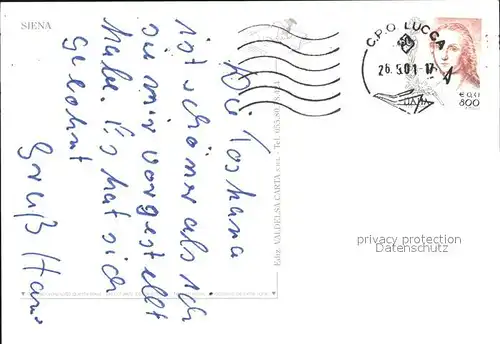 SIENA
Die Toskana
ist schöner als ich
sie mir vorgestellt
habe. Es hat sich
gelohnt
Gruß Hans
Ediz. VALDELSA CARTA s.n.c. - Tel. 055.80
C.P.O LUCCA
26.5.01-17
€ 0,41
800
privacy protection
Datenschutz